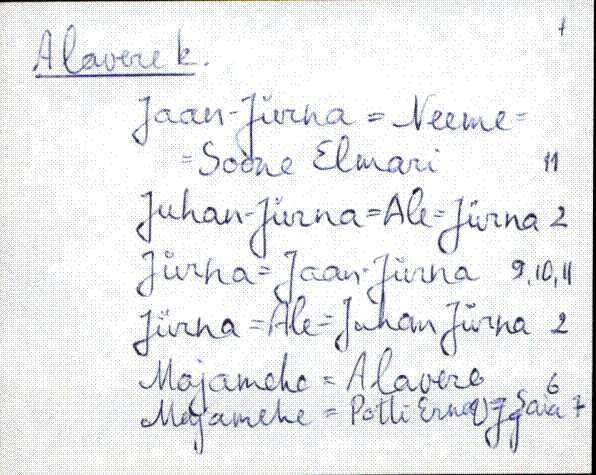 1
Alavere k.
Jaan-Jürna = Neeme =
= Soone Elmari 11
Juhan-Jürna = Ale = Jürna 2
Jürna = Jaan-Jürna 9, 10, 11
Jürna = Ale = Juhan Jürna 2
Mäjamehe = Alavere 6
Mäjamehe = Potti Erna Saia 7